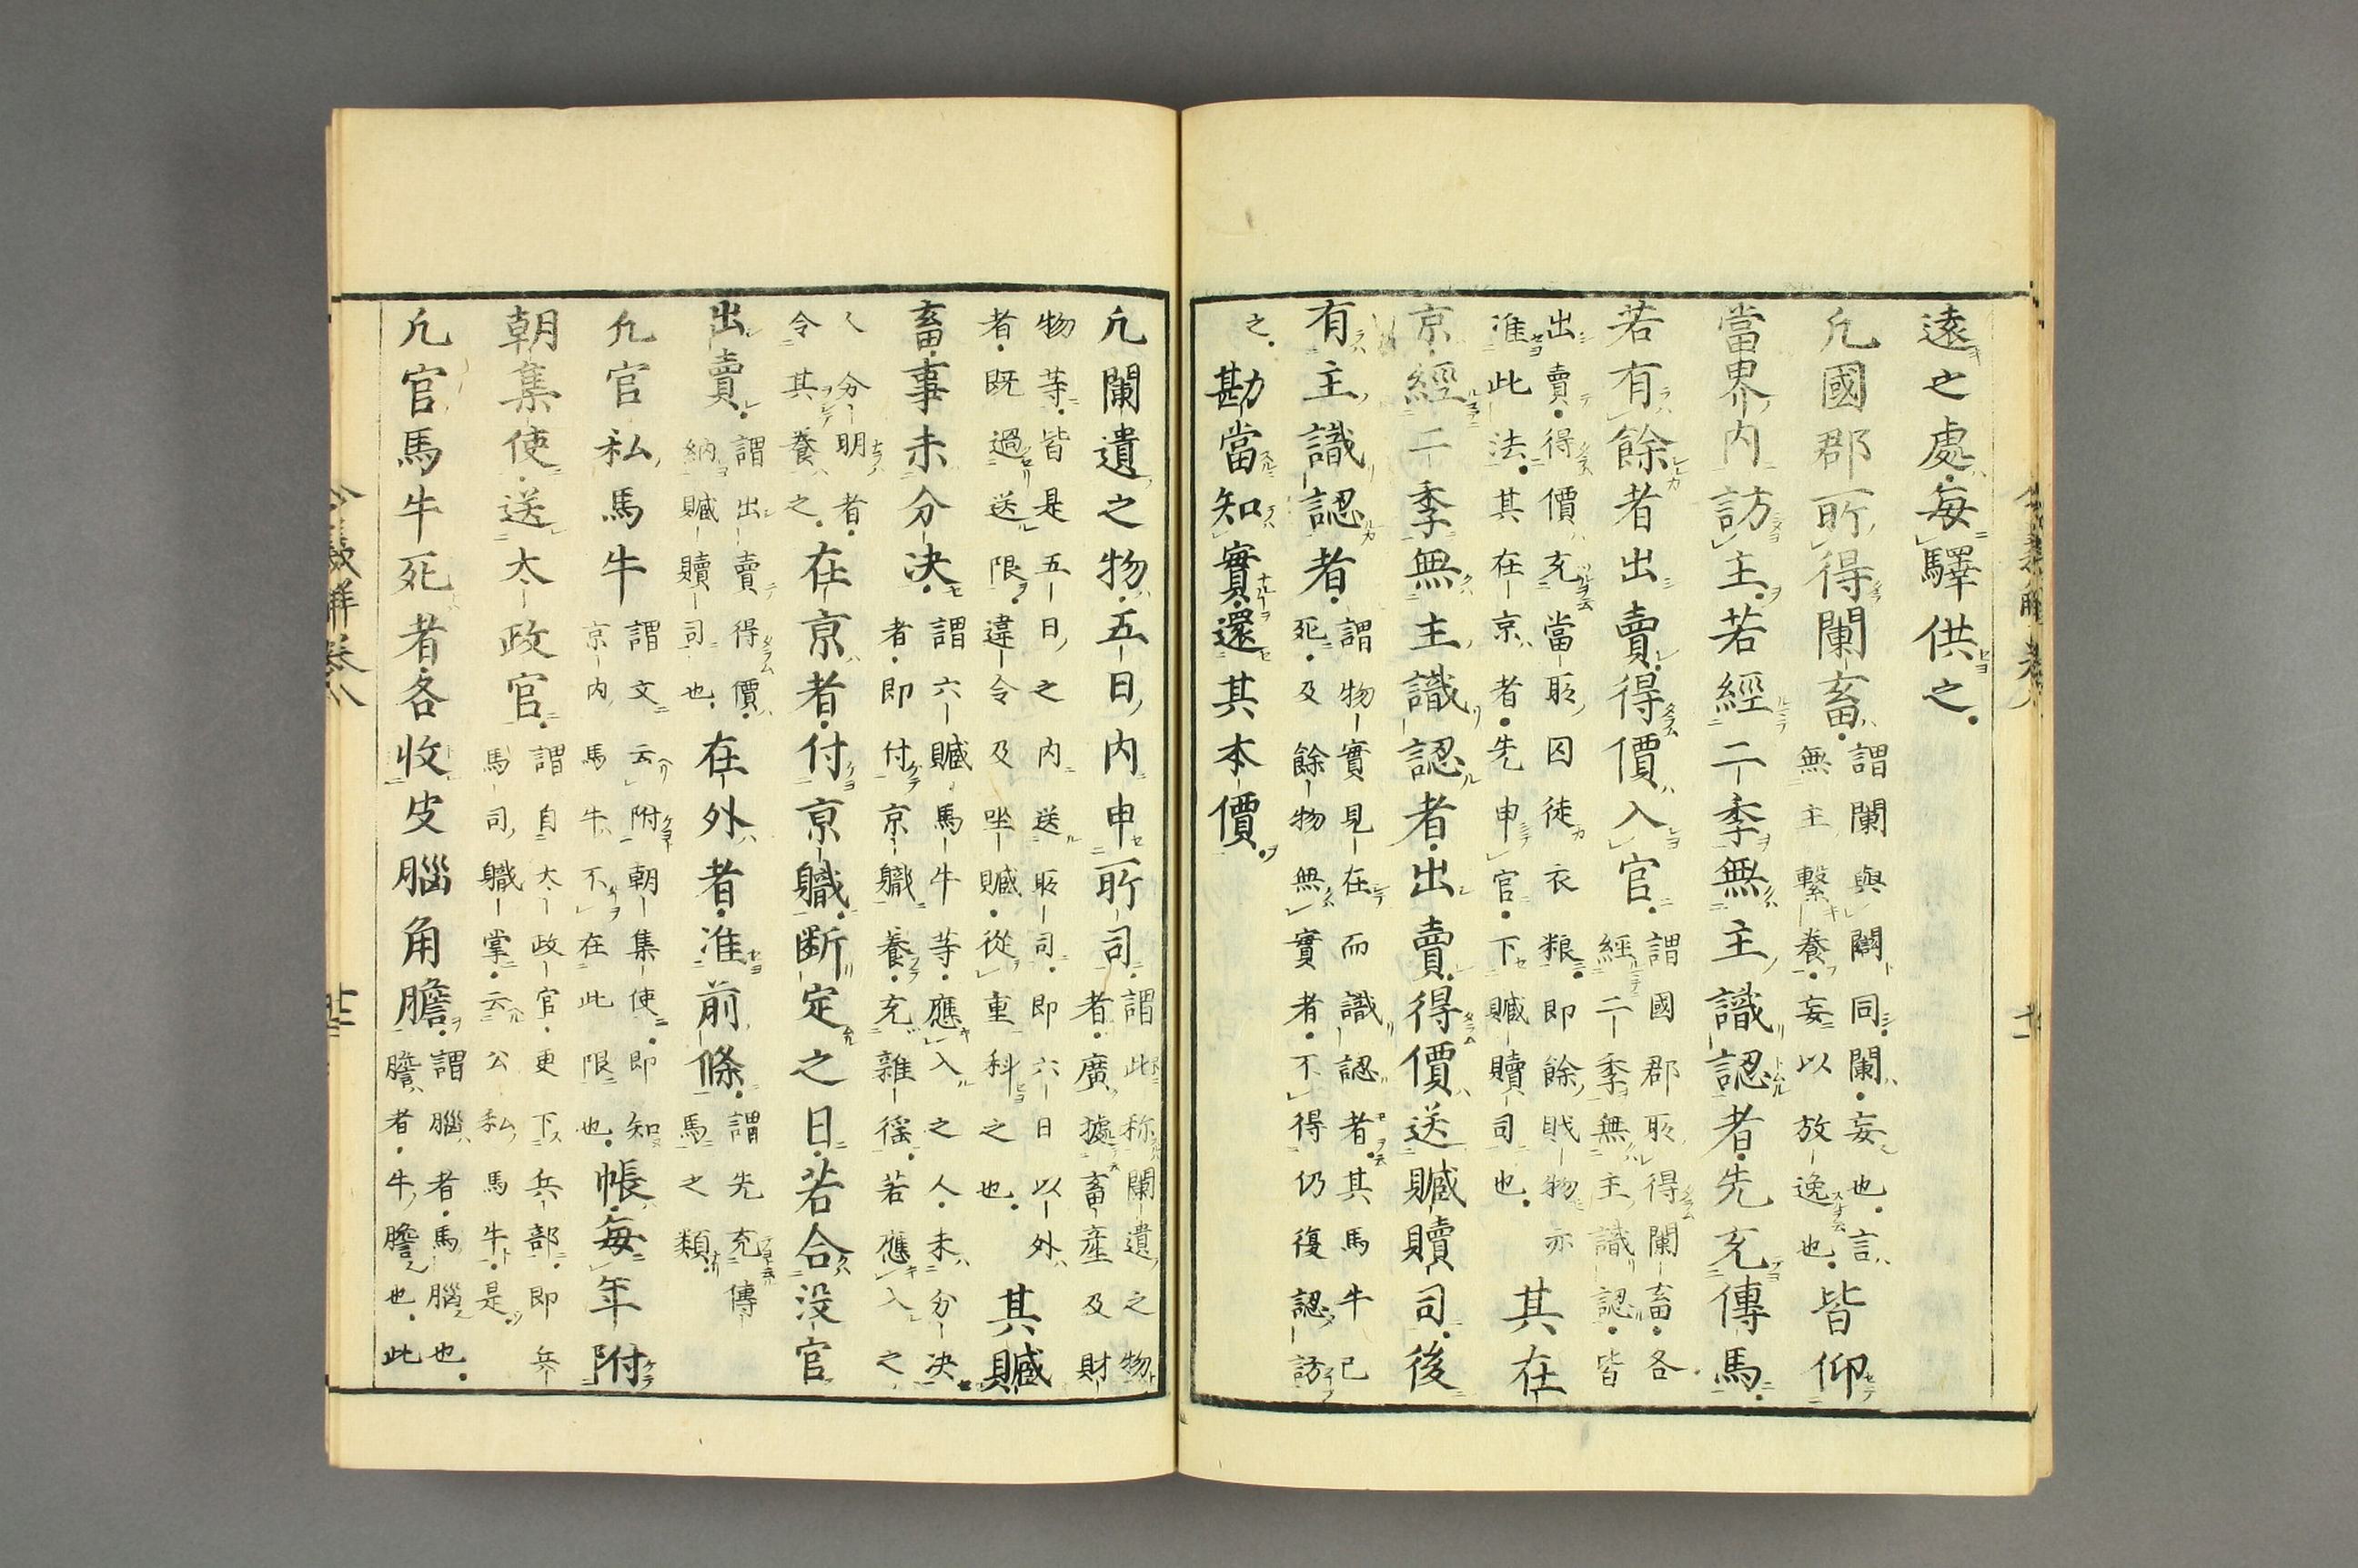 遠之處毎驛供之
凢國郡所得闌畜謂闌與闌同闌妄也言
無主繋養妄以放逸也皆仰
當界内訪主若經二季無主識認者先充傳馬
若有餘者出賣得價入官謂國郡所得闌畜各
經二季無主識認皆
出賣得價充當所囚徒衣粮即餘賎物亦
准此法其在京者先申官下贓贖司也其在
京經二季無主識認者出賣得價送贓贖司後
有主識認者謂物實見在而識認者其馬牛已
死及餘物無實者不得仍復認訪
之勘當知實還其本價
凢闌遺之物五日内申所司謂此称闌遺之物
者廣據畜産及財
物等皆是五日之内送所司即六日以外
者既過送限違令及坐贓從重科之也其贓
畜事未分决謂六贓馬牛等應入之人未分决
者即付京職養充雜徭若應入之
人分明者
令其養之在京者付京職断定之日若合没官
出賣謂出賣得價
納贓贖司也在外者准前條謂先充傳
馬之類
凢官私馬牛謂文云附朝集使即知
京内馬牛不在此限也帳毎年附
朝集使送太政官謂自太政官更下兵部即兵
馬司職掌云公私馬牛是
凢官馬牛死者各收皮腦角膽謂腦者馬腦也
膽者牛膽也此
令義解卷八